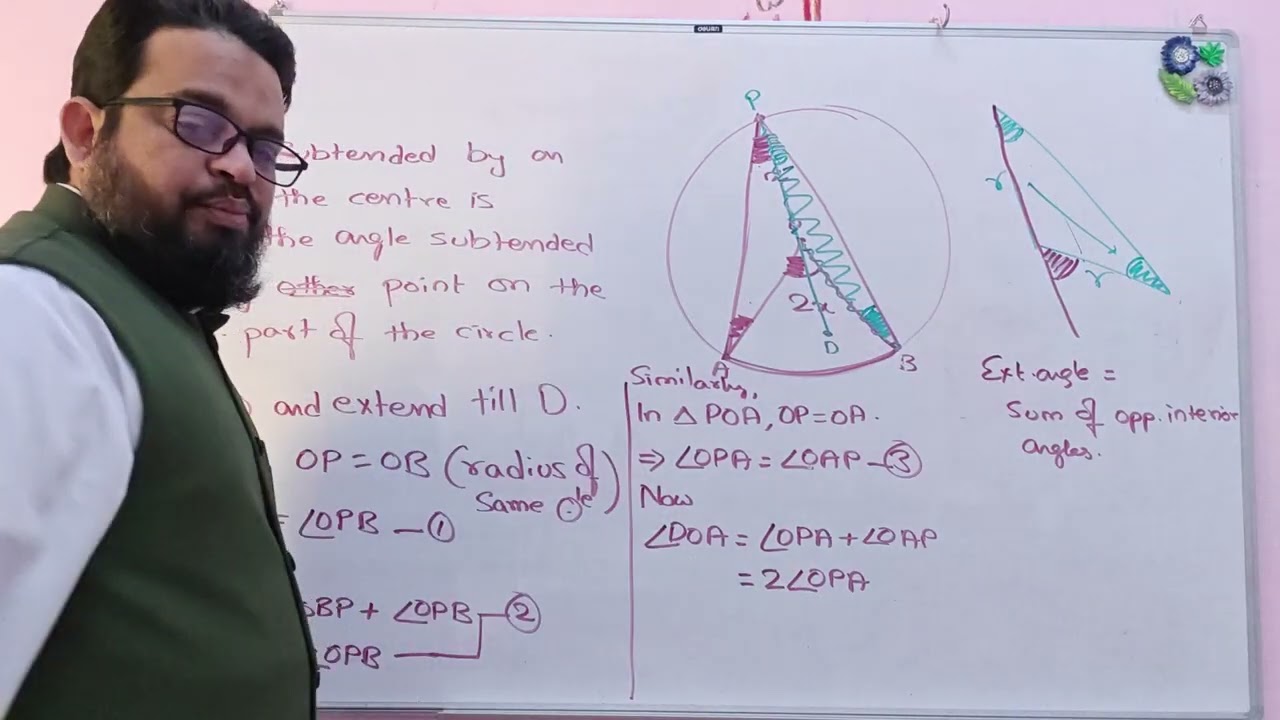 deli
subtended by an
the centre is
the angle subtended
other point on the
part of the circle.
and extend till D.
OP = OB (radius of
same ⊙le)
= ∠OPB — ①
OBP + ∠OPB — ②
∠OPB
P
x
2x
D
A
B
Similarly,
In △ POA, OP = OA.
⇒ ∠OPA = ∠OAP — ③
Now
∠DOA = ∠OPA + ∠OAP
= 2∠OPA
r
r
Ext. angle =
Sum of opp. interior
angles.